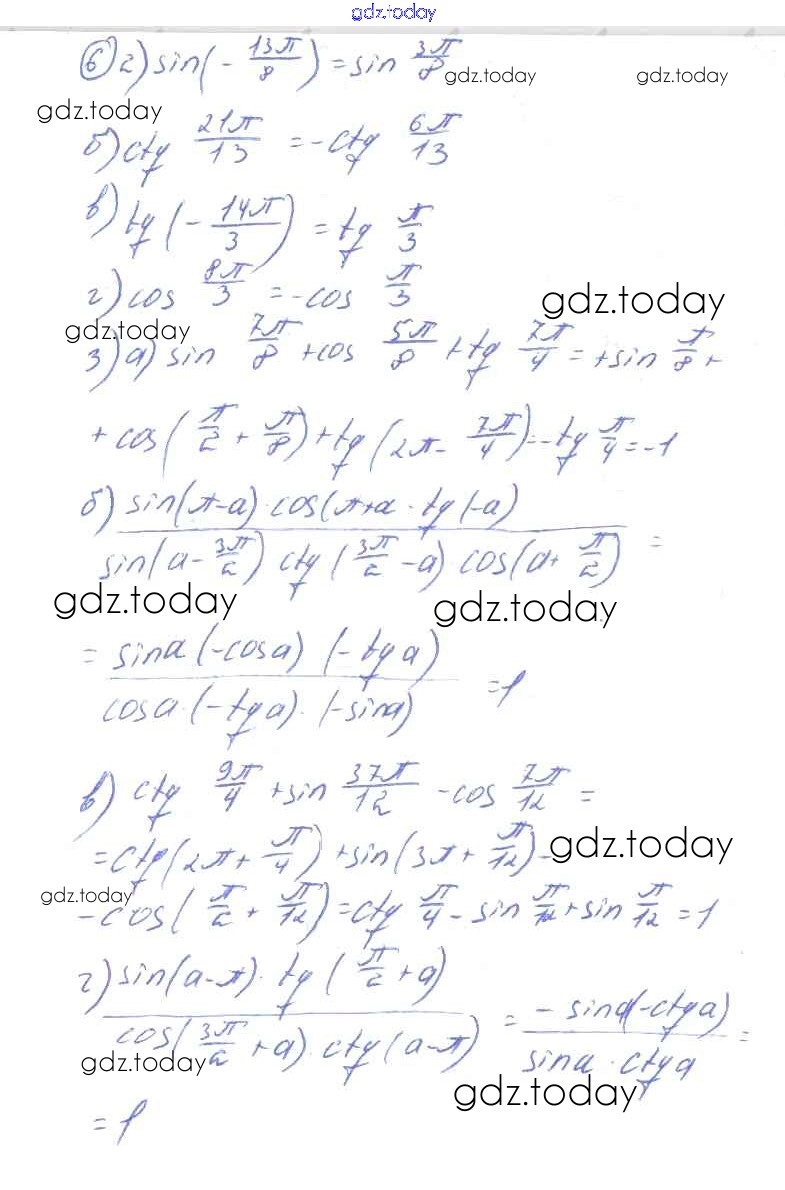 gdz.today
6 г) sin(- 13π/8) = sin 3π/8
gdz.today gdz.today
gdz.today
б) ctg 21π/13 = -ctg 6π/13
в) tg(- 14π/3) = tg π/3
г) cos 8π/3 = -cos π/3
gdz.today
gdz.today
3) а) sin 7π/8 + cos 5π/8 + tg 7π/4 = + sin π/8 +
+ cos(π/2 + π/8) + tg(2π - 7π/4) = -tg π/4 = -1
б) sin(π-a) · cos(π+a · tg(-a) / sin(a - 3π/2) ctg(3π/2 - a) · cos(a + π/2) =
gdz.today gdz.today
= sin a (-cos a) (-tg a) / cos a · (-tg a) · (-sin a) = 1
в) ctg 9π/4 + sin 37π/12 - cos 7π/12 =
= ctg(2π + π/4) + sin(3π + π/12) -
gdz.today
gdz.today
- cos(π/2 + π/12) = ctg π/4 - sin π/12 + sin π/12 = 1
г) sin(a-π) · tg(π/2 + a) / cos(3π/2 + a) · ctg(a-π) = - sin a(-ctg a) / sin a · ctg a =
gdz.today
gdz.today
= 1